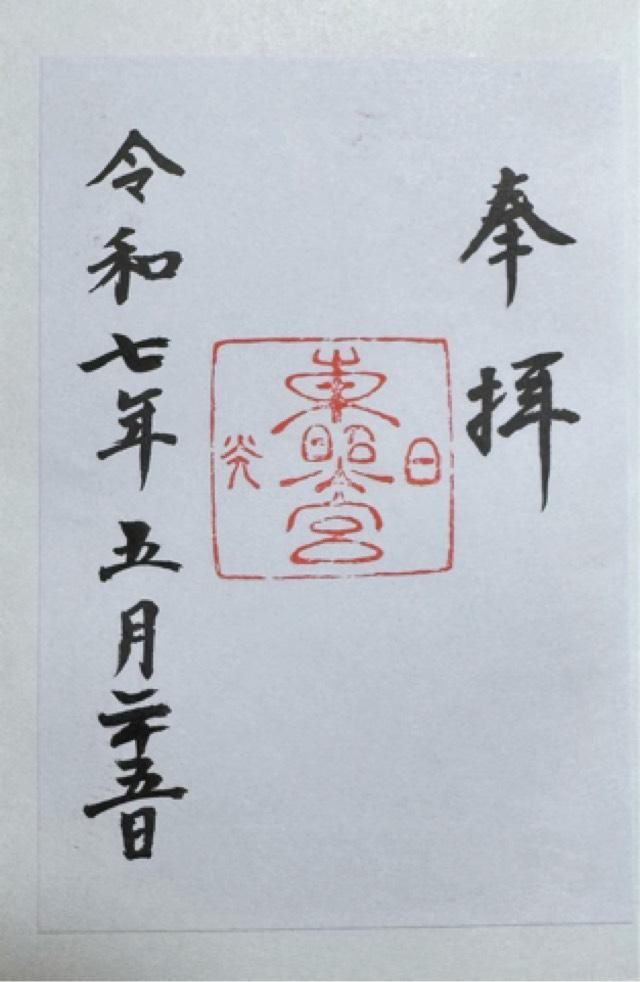 奉拝
日光
東照宮
令和七年五月二十五日